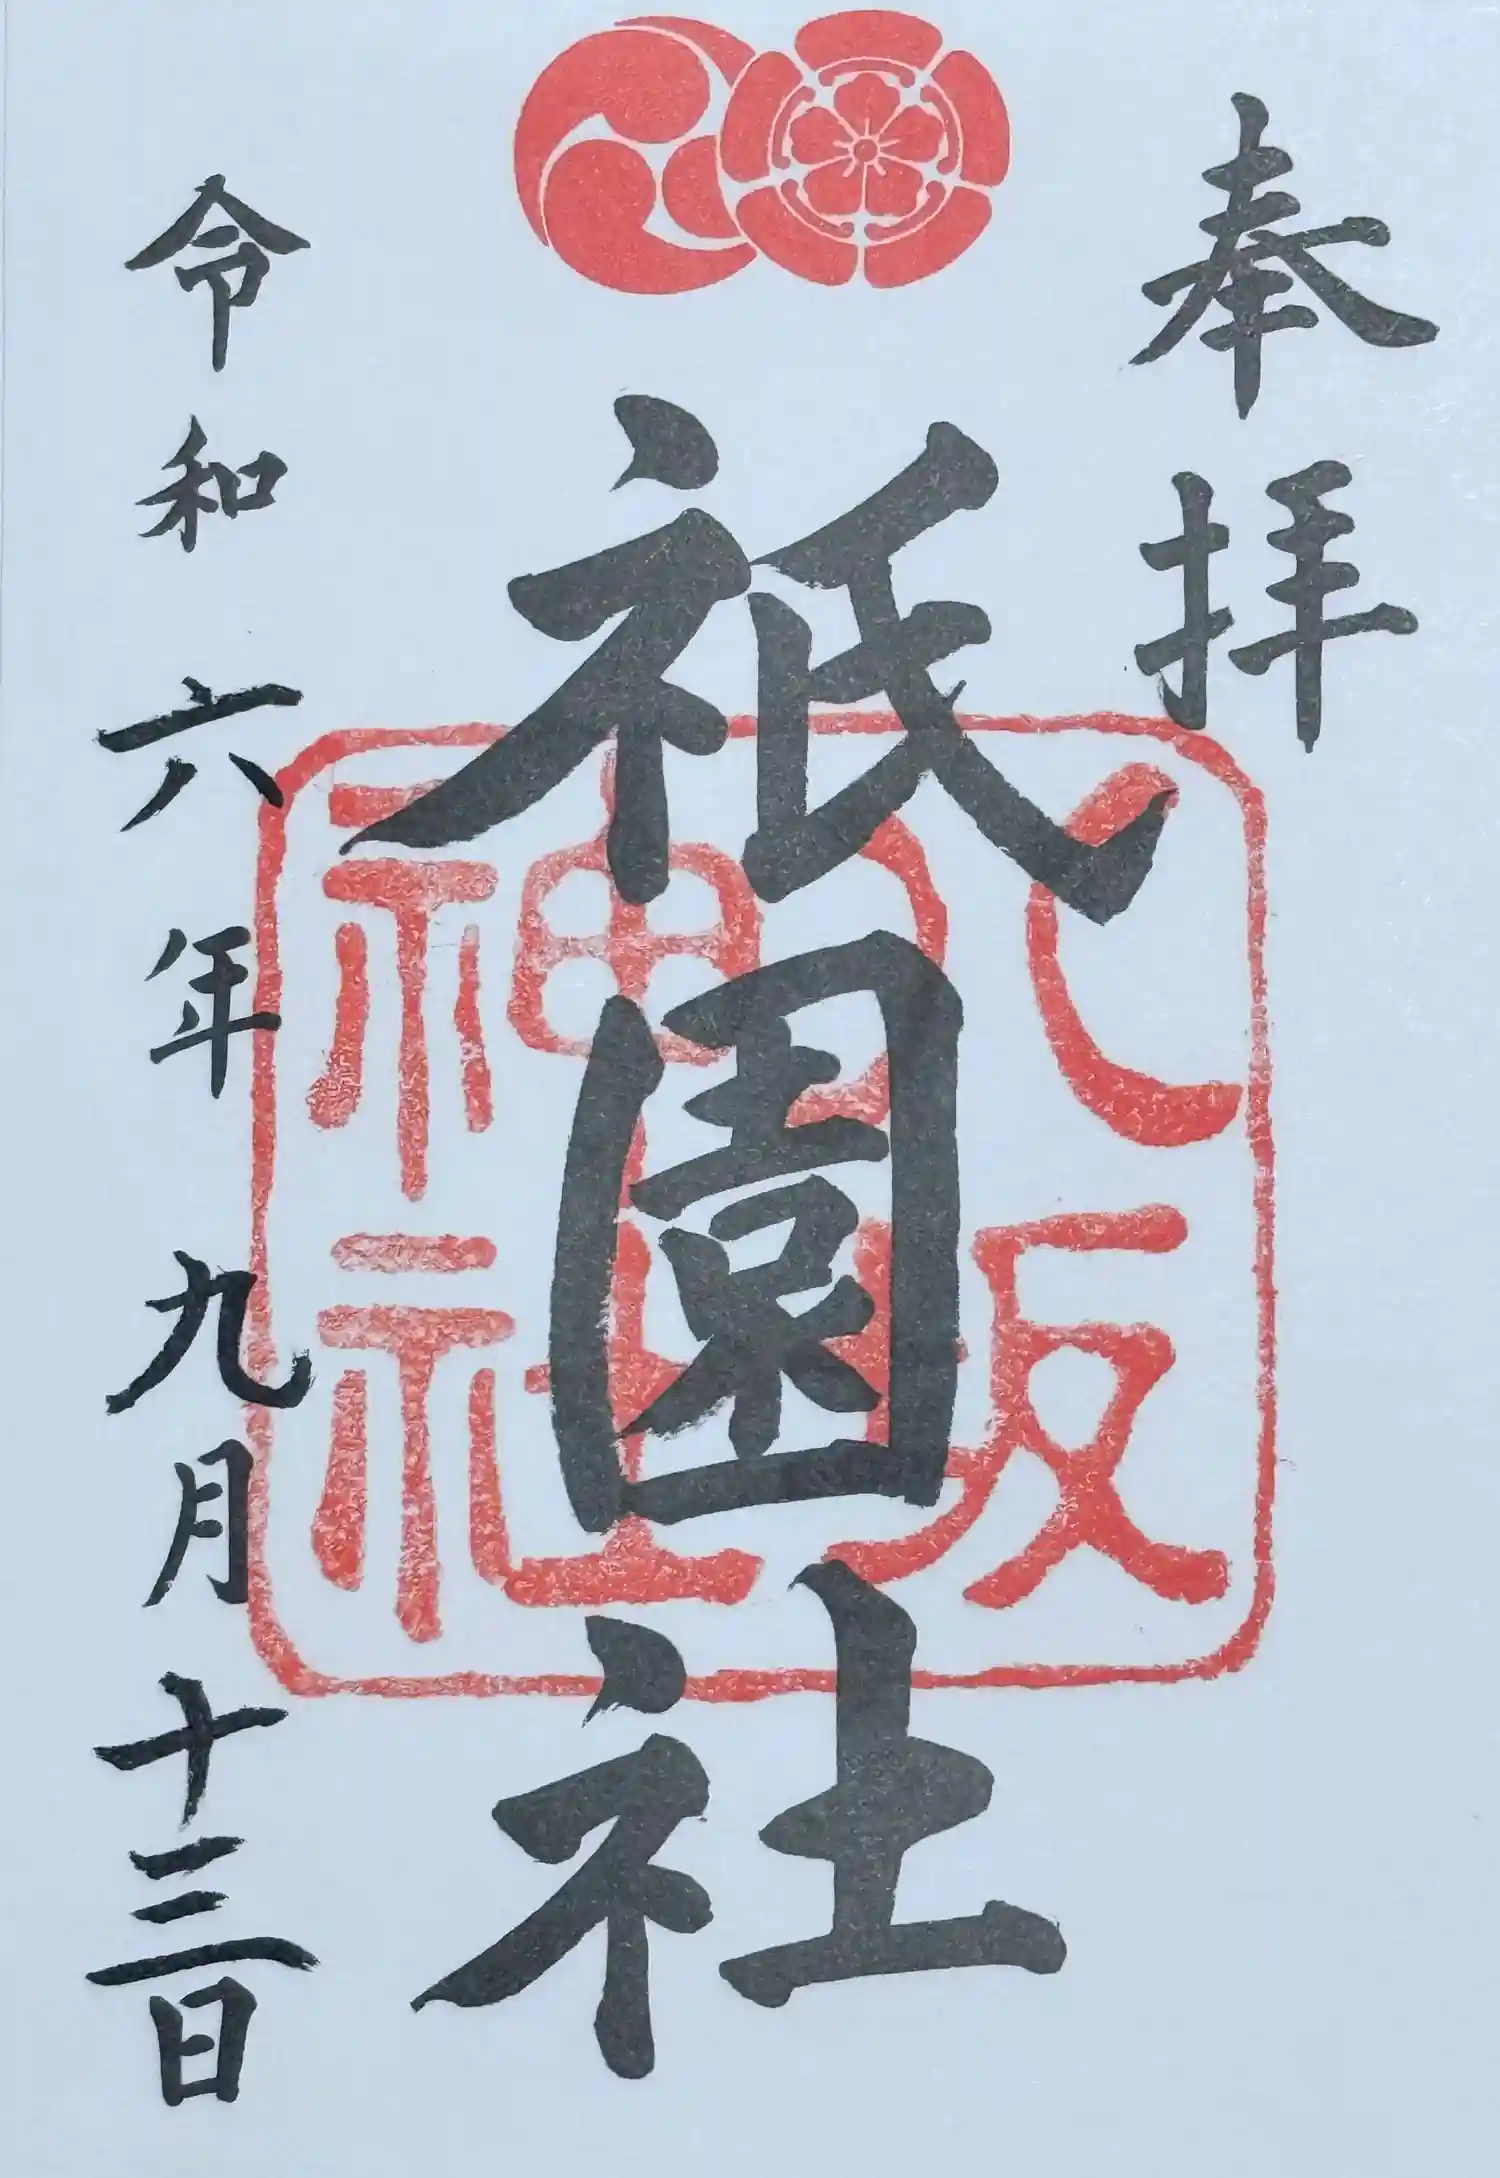 奉拝
祇園社
八坂神社
令和六年九月十三日